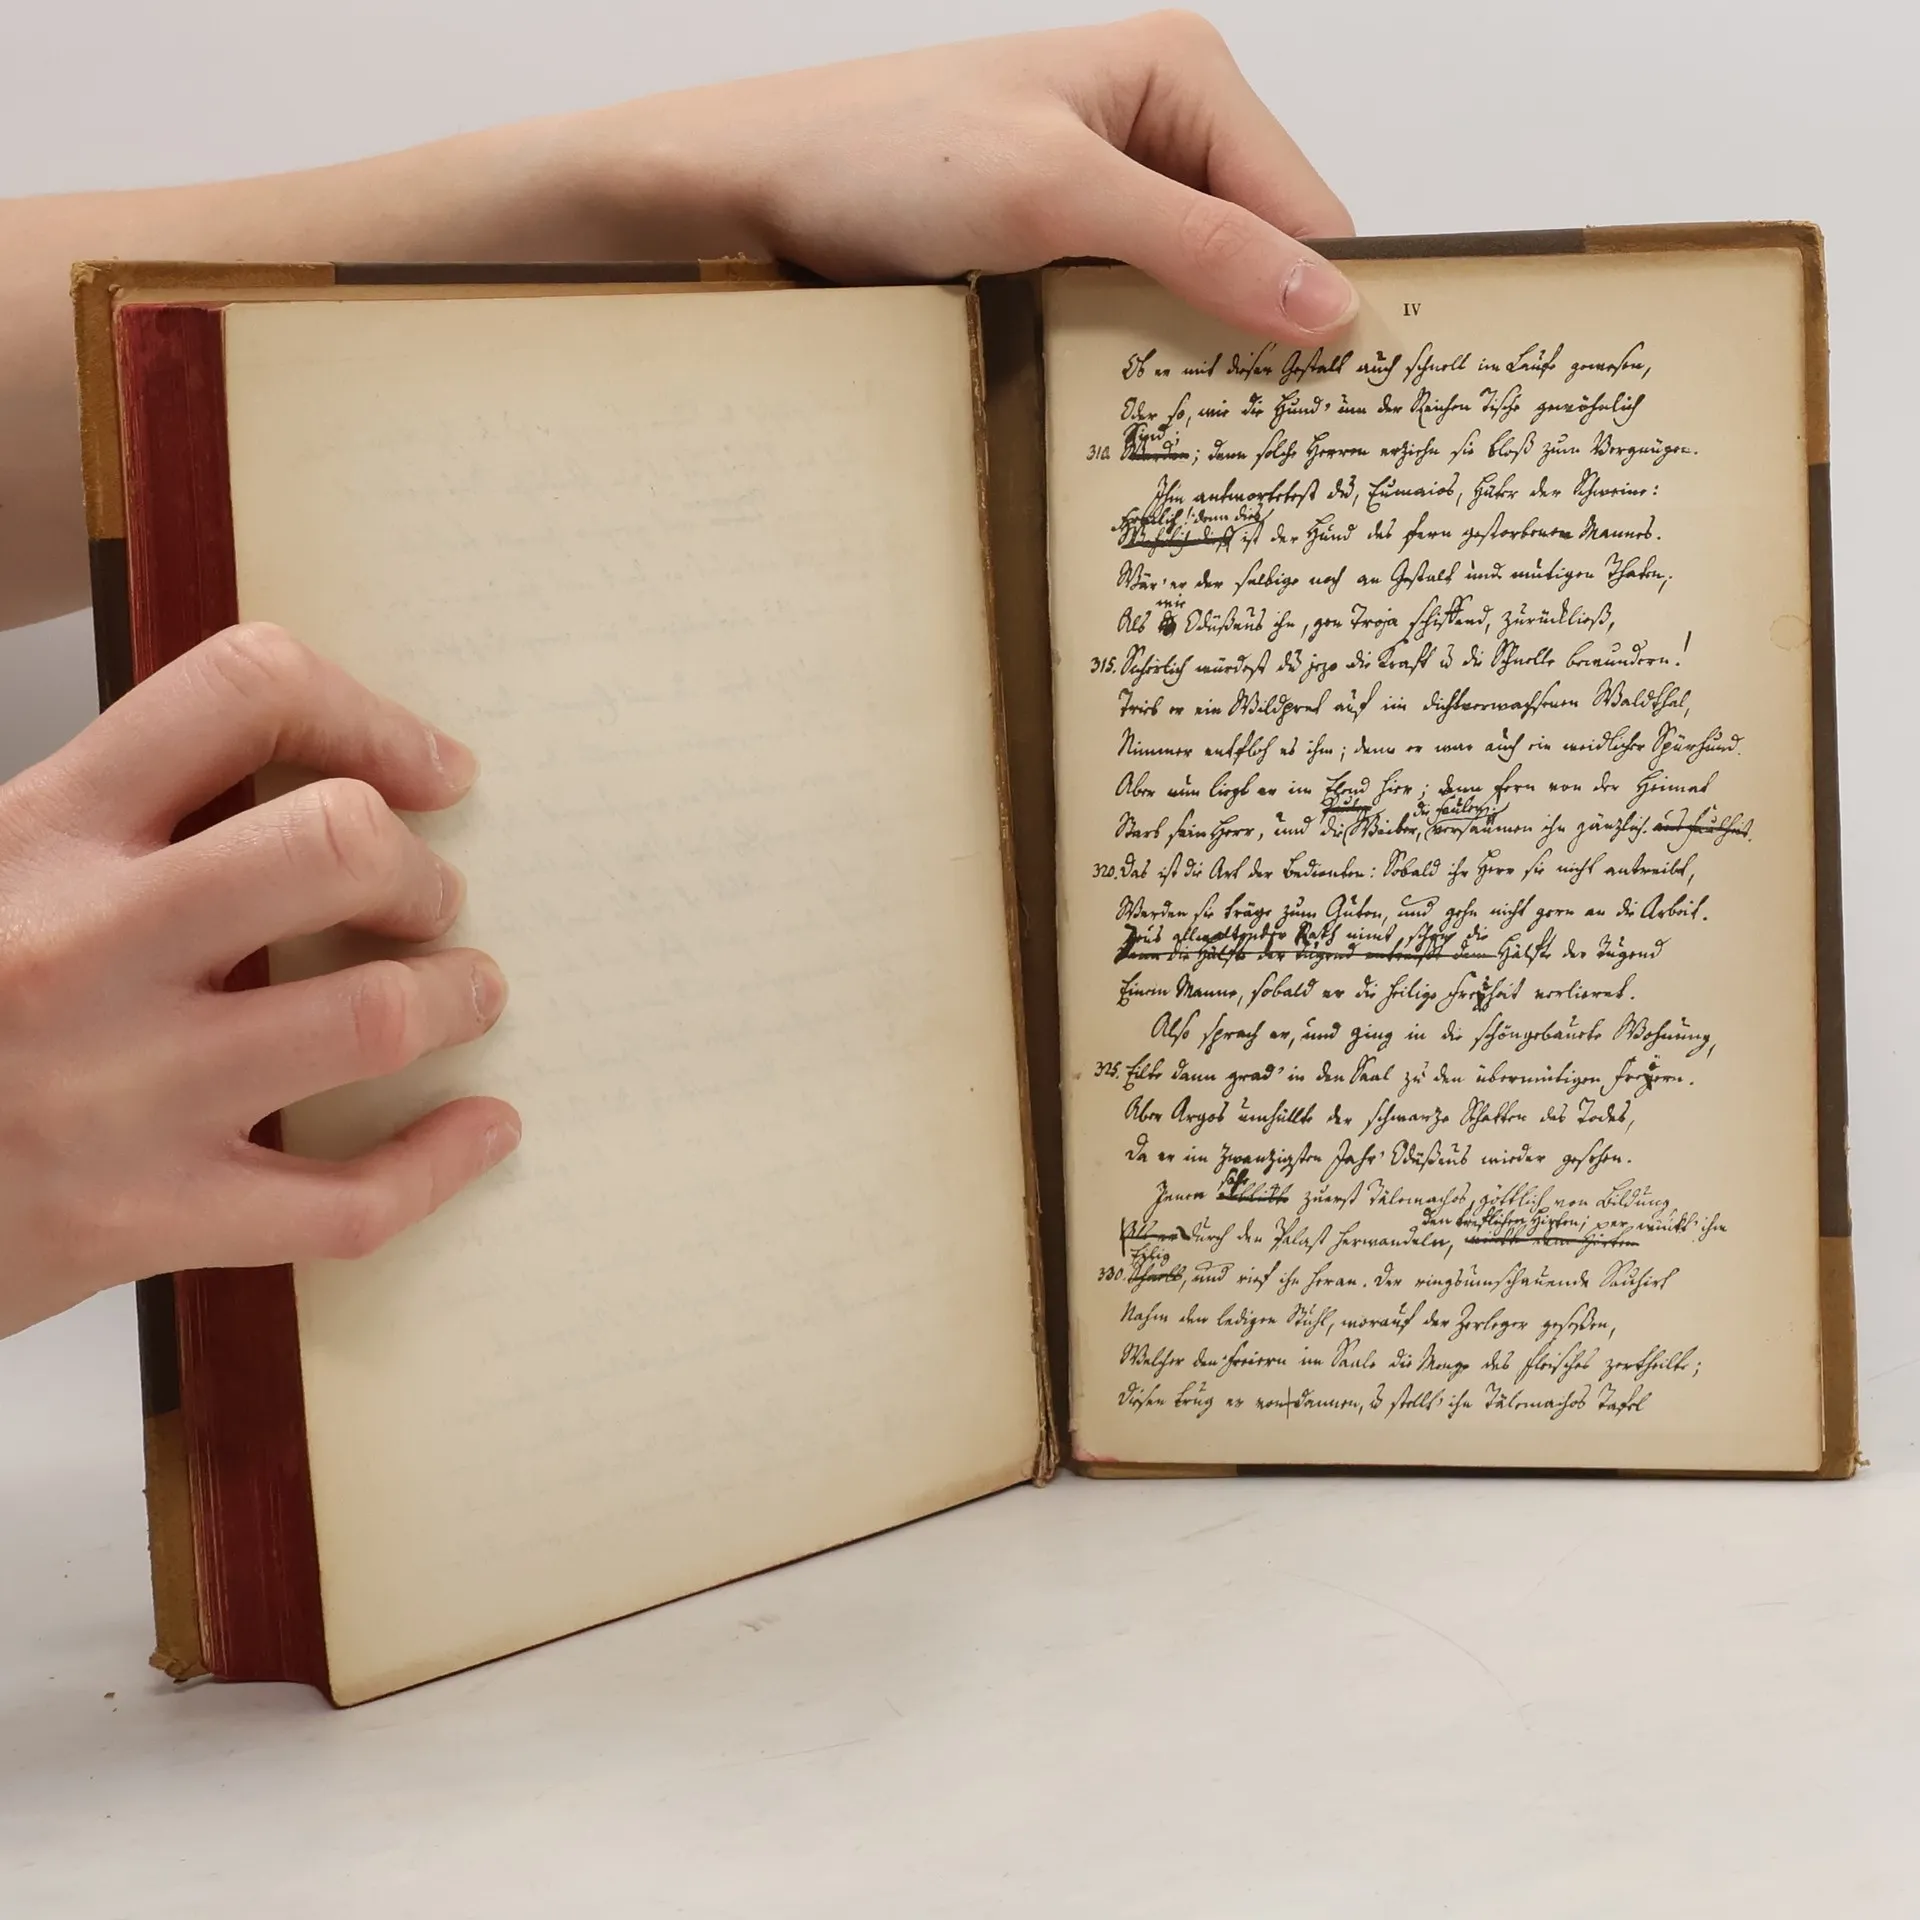 IV
Ob er mit dieser Gestalt auch schnell im Laufe gewesen,
Oder so, wie die Hund' um der Reichen Tische gewöhnlich
Sind;
310. Werden; denn solche Herren erziehn sie bloß zum Vergnügen.
Ihm antwortetest du, Eumaios, Hüter der Schweine:
Freilich! denn dies
Wahrlich dieß ist der Hund des fern gestorbenen Mannes.
Wär' er der selbige noch an Gestalt und mutigen Thaten,
wie
Als Odüßeus ihn, gen Troja schiffend, zurückließ,
315. Sicherlich würdest du jezo die Kraft u die Schnelle bewundern!
Trieb er ein Wildpret auf im dichtverwachsenen Waldthal,
Nimmer entfloh es ihm; denn er war auch ein weidlicher Spürhund.
Aber nun liegt er im Elend hier; denn fern von der Heimat
Faulen die faulen;
Starb sein Herr, und die Weiber, versäumen ihn gänzlich. aus Faulheit.
320. Das ist die Art der Bedienten: Sobald ihr Herr sie nicht antreibt,
Werden sie träge zum Guten, und gehn nicht gern an die Arbeit.
Zeus allwaltender Rath nimt schon die
Denn die Hälfte der Tugend entreißt dem Hälfte der Tugend
Einem Manne, sobald er die heilige Freyheit verlieret.
Also sprach er, und ging in die schöngebauete Wohnung,
325. Eilte dann grad' in den Saal zu den übermütigen Freyern.
Aber Argos umhüllte der schwarze Schatten des Todes,
Da er im zwanzigsten Jahr' Odüßeus wieder gesehen.
sahe
Jenen erblickte zuerst Tälemachos, göttlich von Bildung
den treflichen Hirten; er winkt' ihm
Als er durch den Palast herwandeln, winkte dem Hirten
Eilig
330. Schnell, und rief ihn heran. Der ringsumschauende Sauhirt
Nahm den ledigen Stuhl, worauf der Zerleger gesessen,
Welcher den Freiern im Saale die Menge des Fleisches zertheilte;
Diesen trug er von dannen, u stellt' ihn Tälemachos Tafel